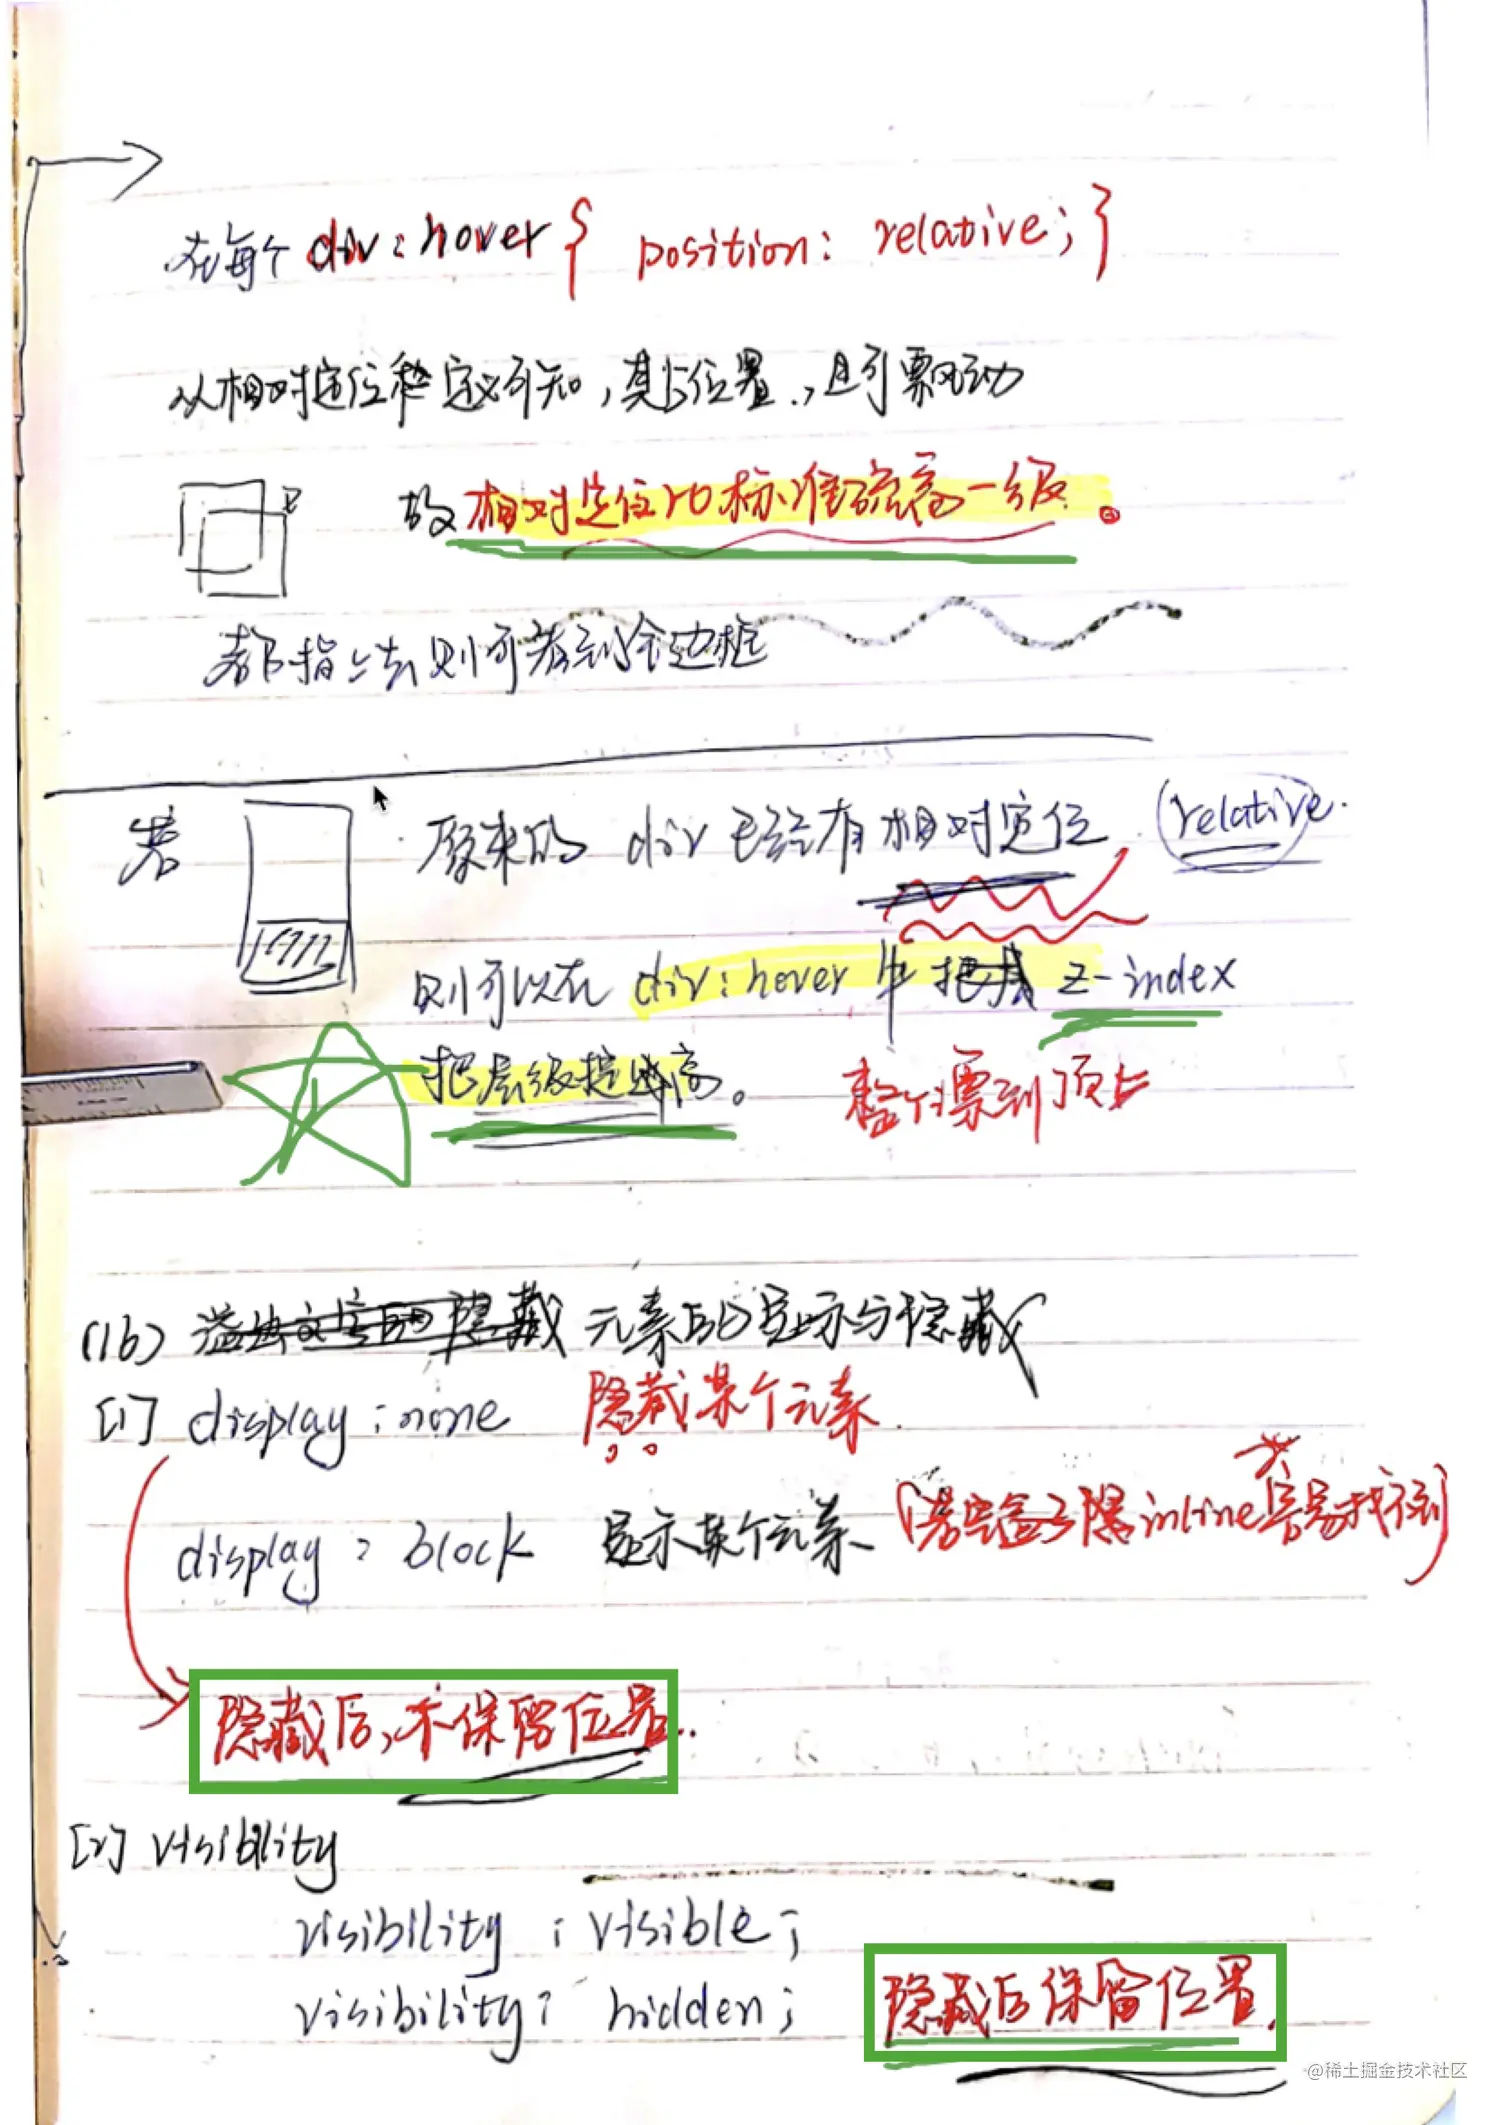 在每个 div:hover { position: relative; }
从相对定位定义可知,其占位置,且可飘动
故相对定位比标准流高一级。
都指上去则可看到全边框
若 原来的 div 已经有相对定位 (relative.
则可以在 div:hover 中 z-index
把层级提高。 整个漂到顶上
(16) 元素的显示与隐藏
[1] display:none 隐藏某个元素.
display: block 显示某个元素 (若空盒子 inline 容易找不到)
隐藏后,不保留位置.
[2] visibility
visibility: visible;
visibility: hidden; 隐藏后保留位置.
@稀土掘金技术社区